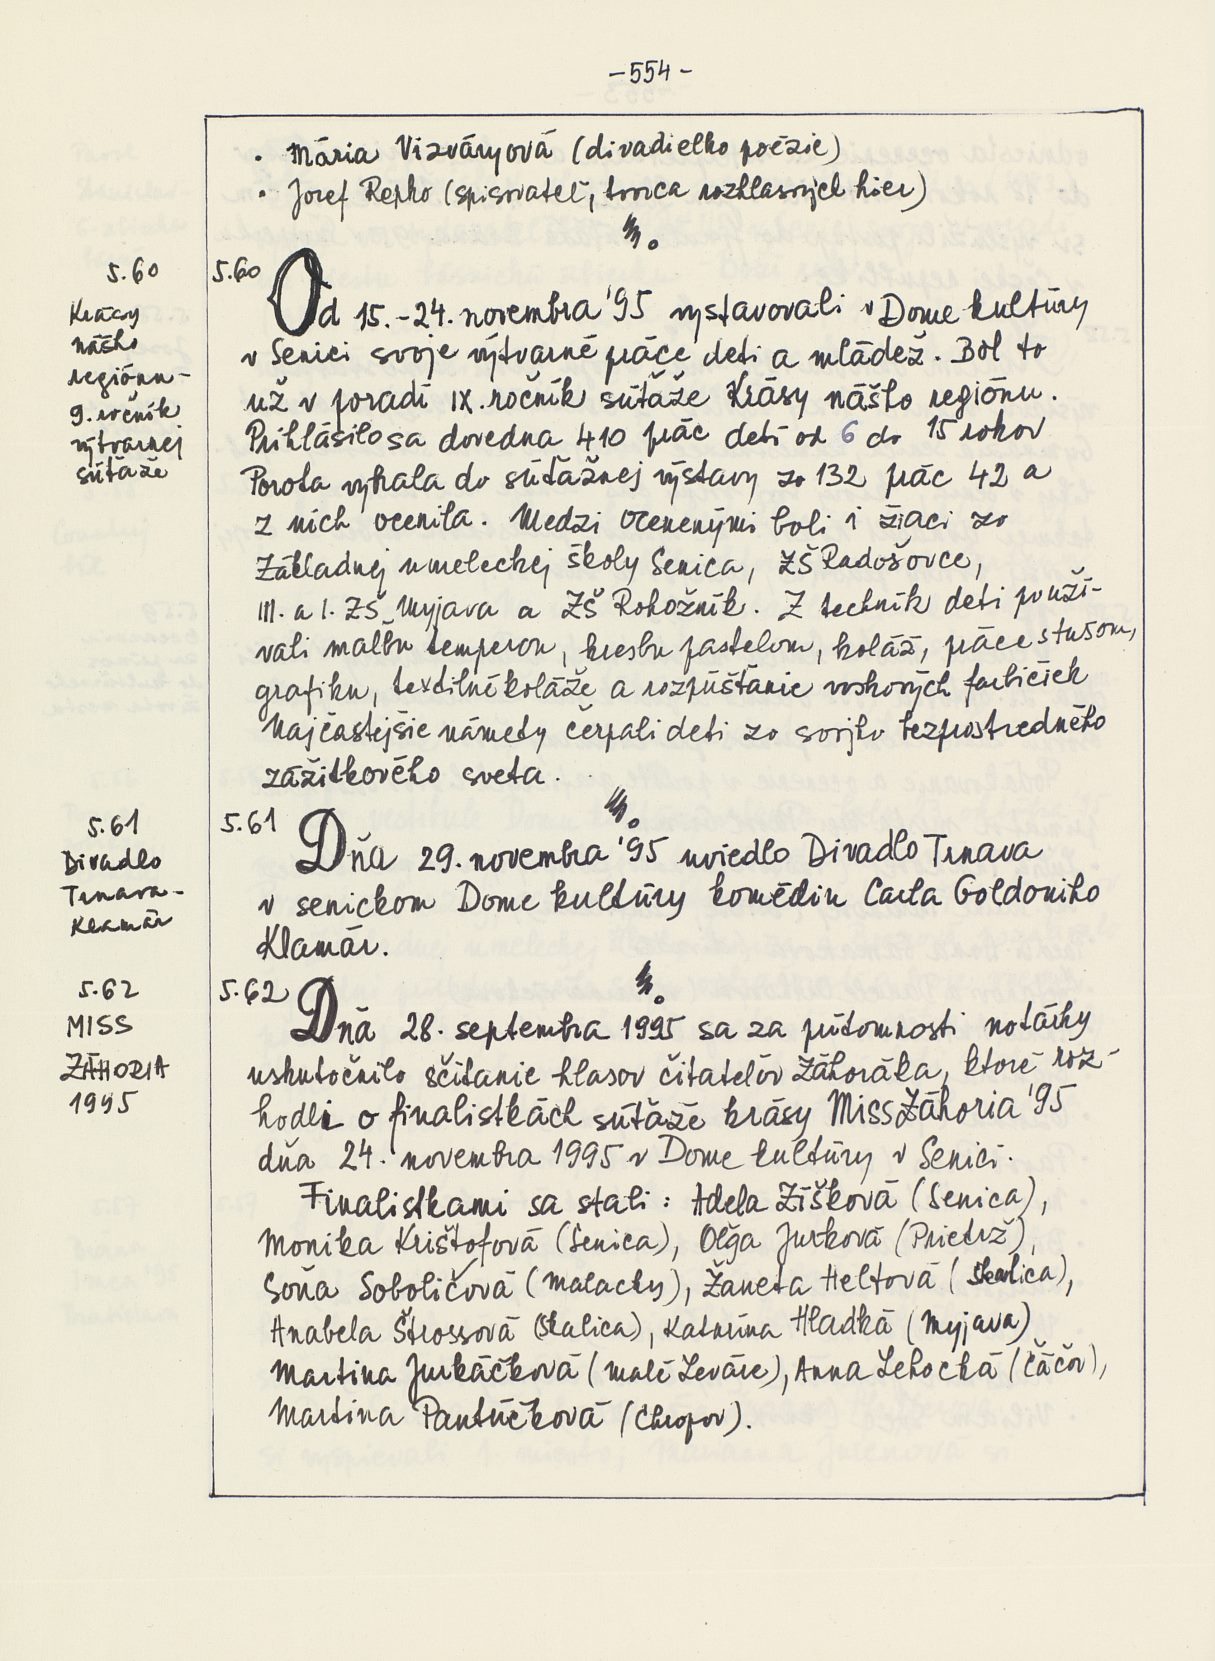 -554-
• Mária Vizváryová (divadielko poézie)
• Jozef Repko (spisovateľ, tvorca rozhlasových hier)
5.60
Krásy
nášho
regiónu-
9. ročník
výtvarnej
súťaže
5.60 Od 15.-24. novembra '95 vystavovali v Dome kultúry
v Senici svoje výtvarné práce deti a mládež. Bol to
už v poradí IX. ročník súťaže Krásy nášho regiónu.
Prihlásilo sa dovedna 410 prác detí od 6 do 15 rokov
Porota vybrala do súťažnej výstavy zo 132 prác 42 a
z nich ocenila. Medzi ocenenými boli i žiaci zo
Základnej umeleckej školy Senica, ZŠ Radošovce,
III. a I. ZŠ Myjava a ZŠ Rohožník. Z techník deti použí-
vali maľbu temperou, kresbu pastelom, koláž, práce s tušom,
grafiku, textilné koláže a rozpúšťanie voskových farbičiek
Najčastejšie námety čerpali deti zo svojho bezprostredného
zážitkového sveta.
5.61
Divadlo
Trnava-
Klamár
5.61 Dňa 29. novembra '95 uviedlo Divadlo Trnava
v senickom Dome kultúry komédiu Carla Goldoniho
Klamár.
5.62
MISS
ZÁHORIA
1995
5.62 Dňa 28. septembra 1995 sa za prítomnosti notárky
uskutočnilo sčítanie hlasov čitateľov Záhoráka, ktoré roz-
hodli o finalistkách súťaže krásy Miss Záhoria '95
dňa 24. novembra 1995 v Dome kultúry v Senici.
Finalistkami sa stali: Adela Zíšková (Senica),
Monika Krištofová (Senica), Oľga Jurková (Prietrž),
Soňa Soboličová (Malacky), Žaneta Heltová (Skalica),
Anabela Štrossová (Skalica), Katarína Hladká (Myjava)
Martina Jurkáčková (Malé Leváre), Anna Lehocká (Čáčov),
Martina Pantúčková (Chropov).